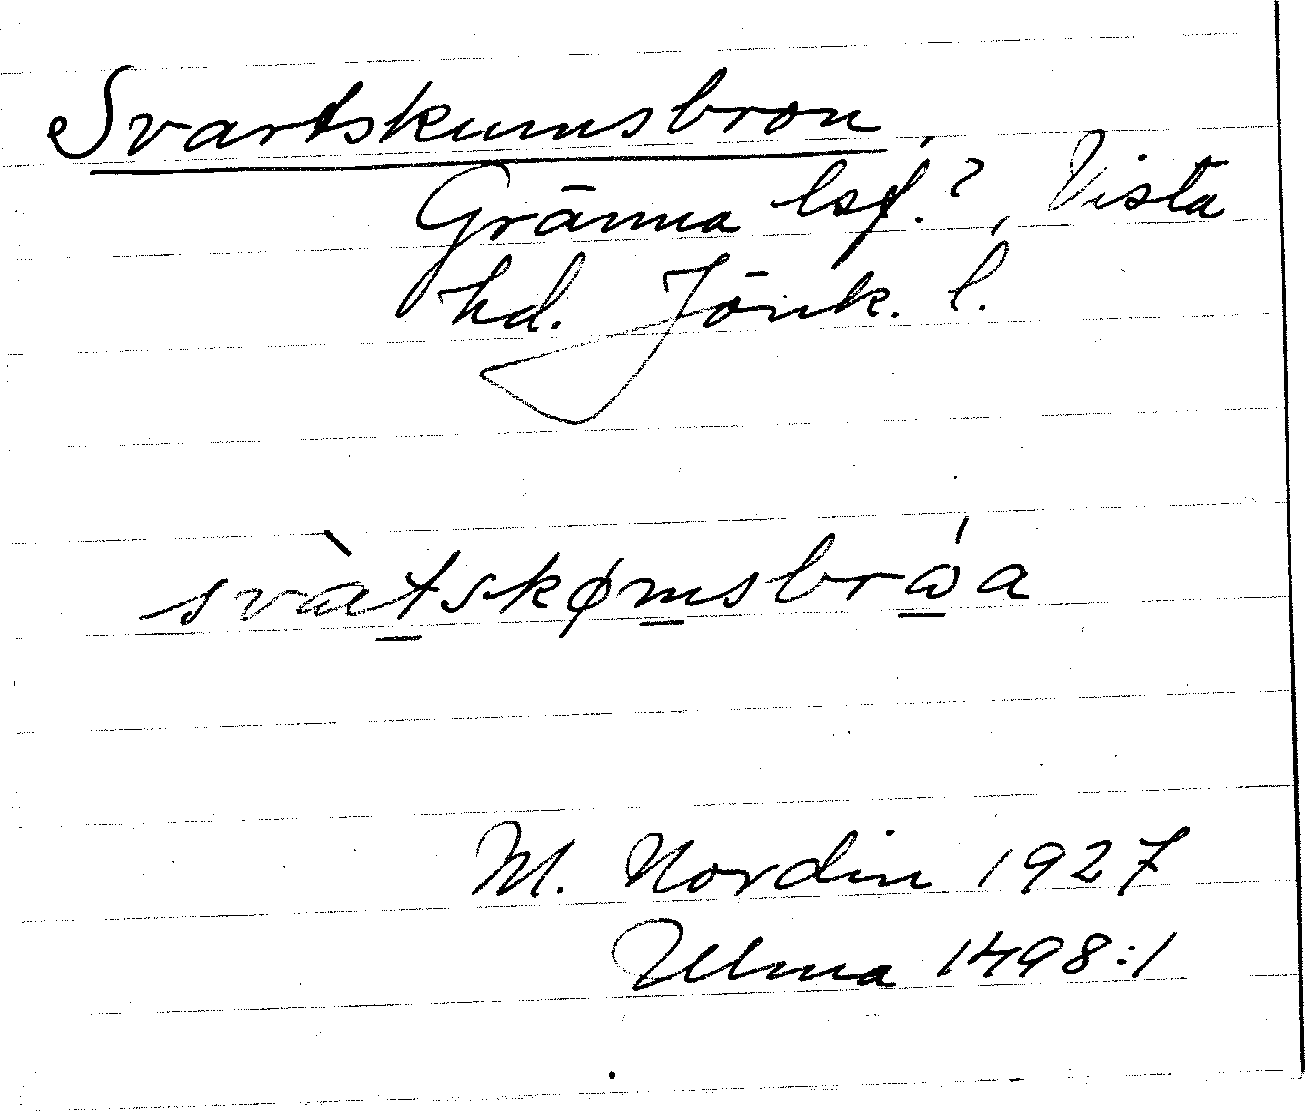 Svartskumsbron,
Gränna lsf.?, Vista
hd. Jönk. l.
svàt̲skøm̲sbrώ̲a
M. Nordin 1927
Ulma 1498:1